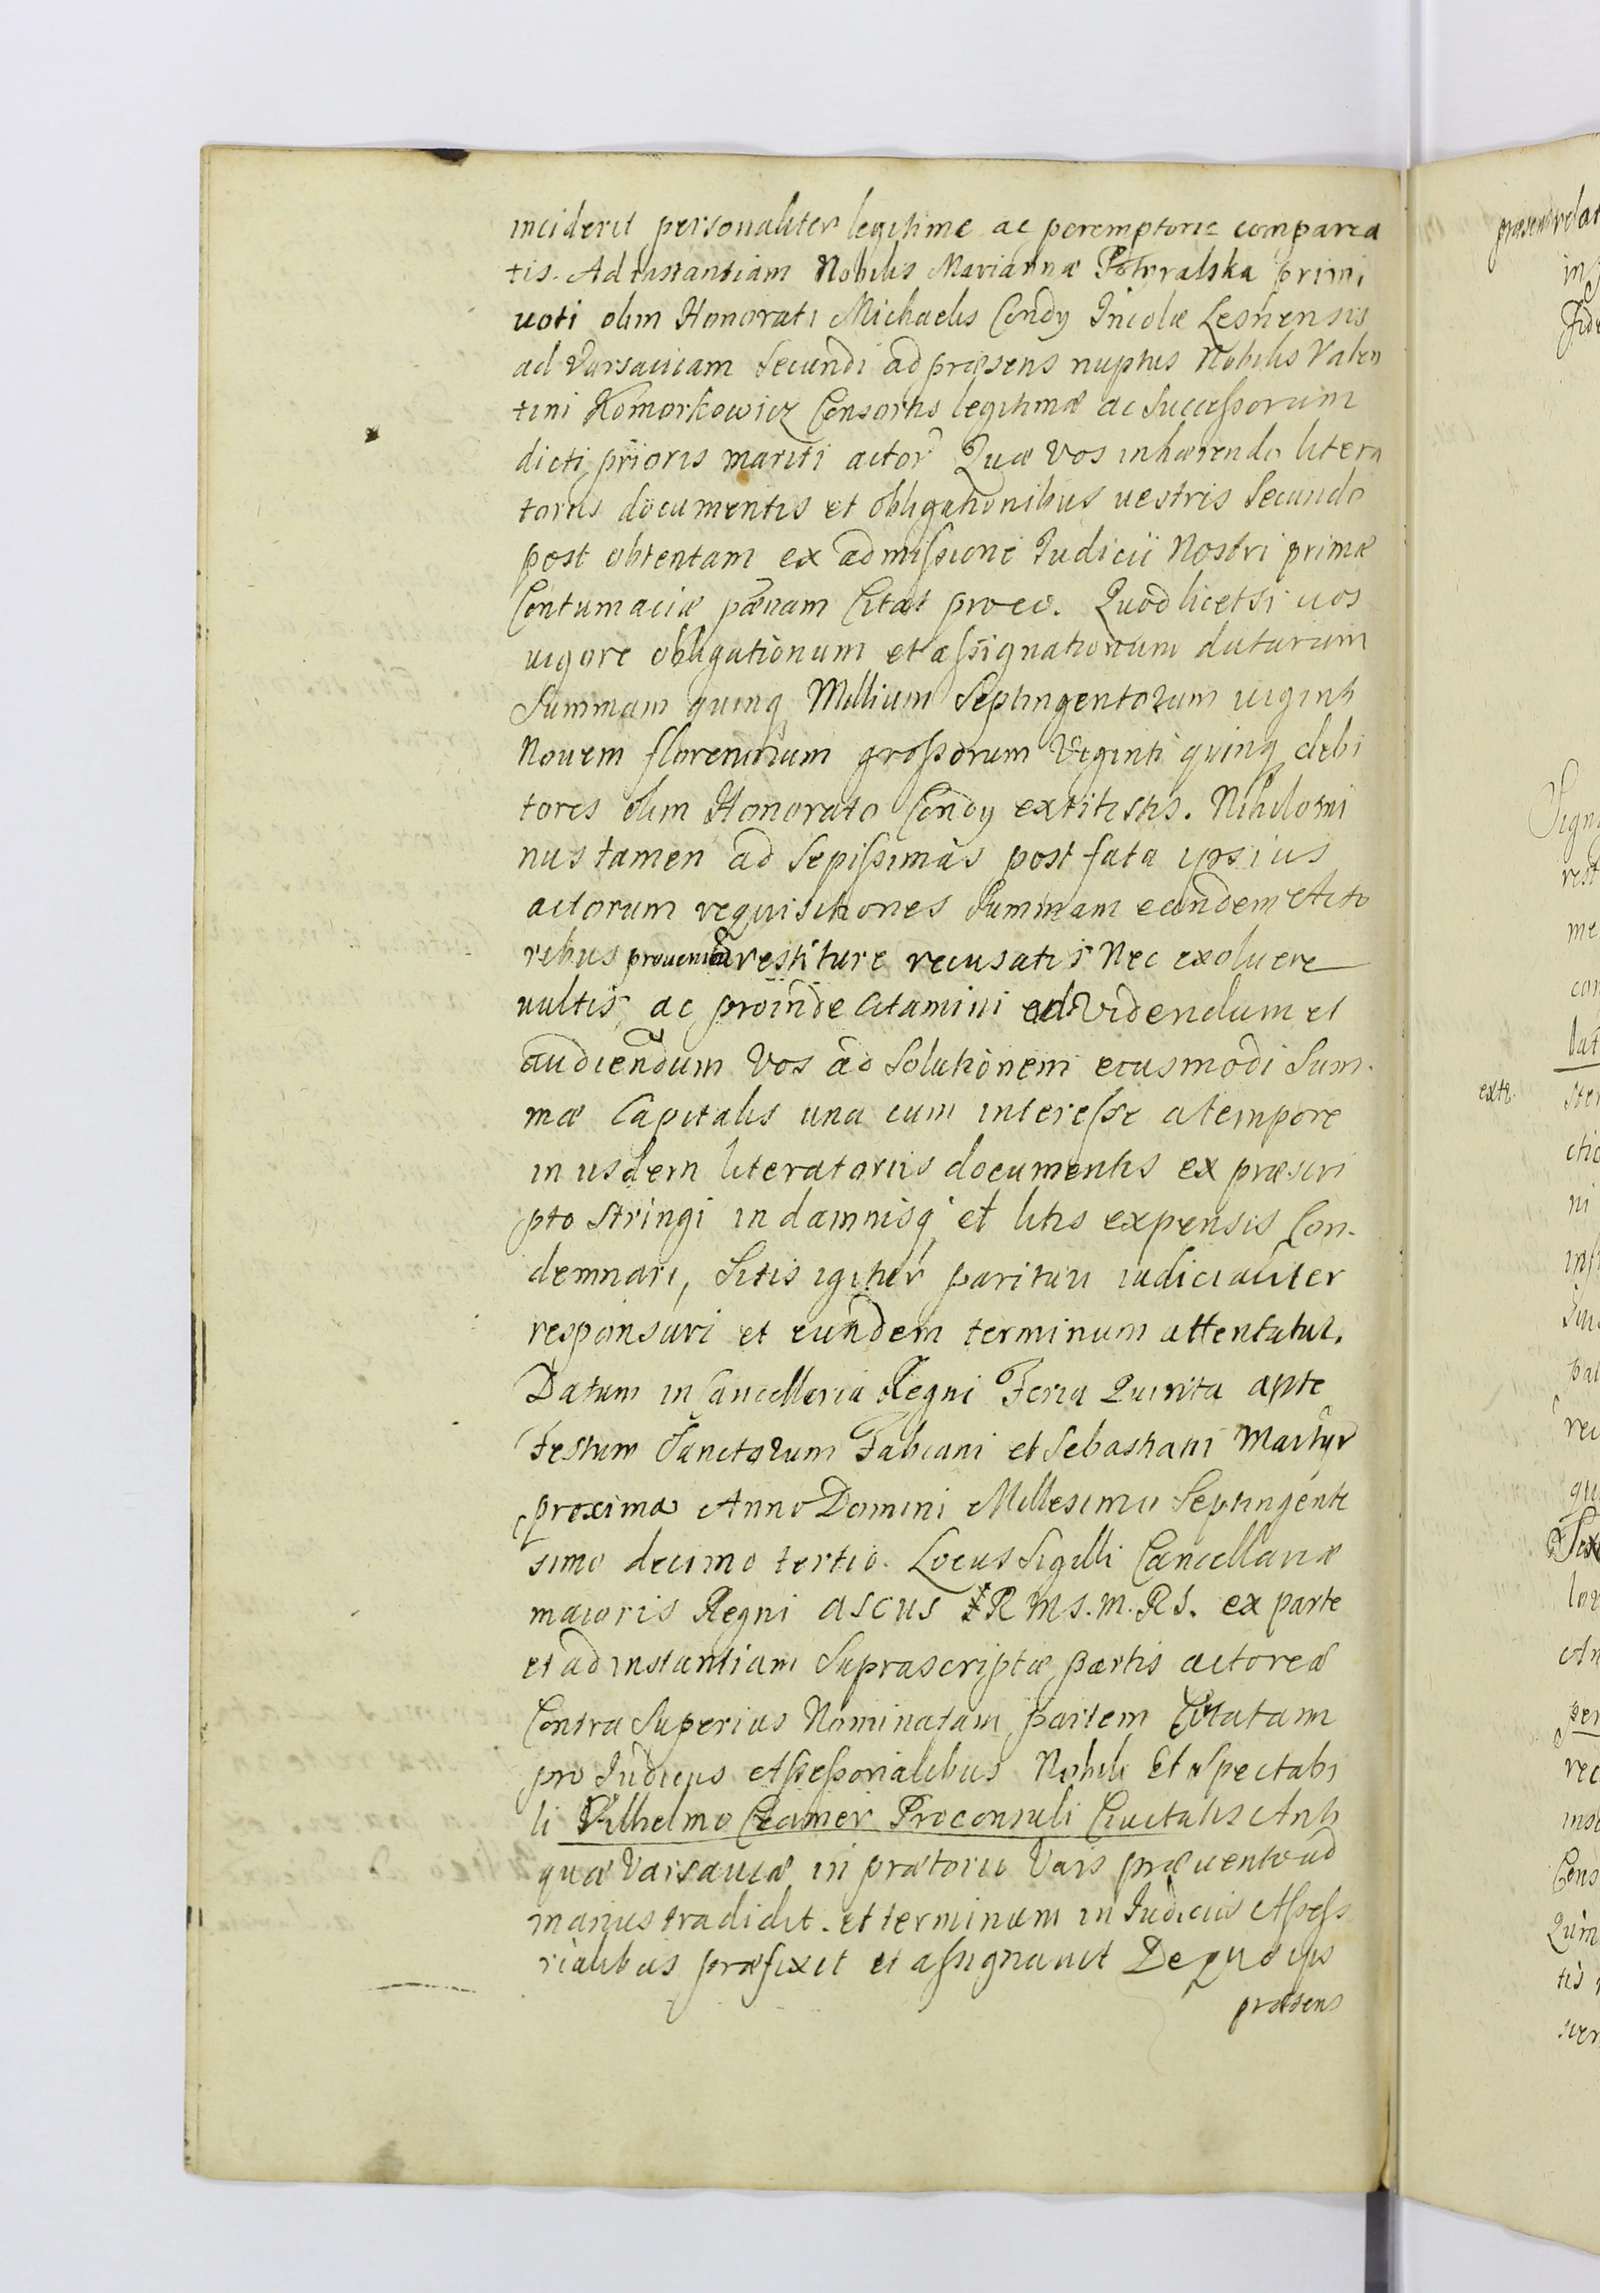 inciderit personaliter legitime ac peremptorie comparea
tis. Ad instantiam Nobilis Mariannæ Potyralska primi
uoti olim Honorati Michaelis Condy Incolæ Lesnensis
ad Varsauiam Secundi ad præsens nuptus Nobilis Valen
tini Komorkowicz Consortis legitimæ ac Successorum
dicti prioris mariti actor Quæ Vos inhærendo litera
toriis documentis et obligationibus uestris Secundo
post obtentam ex admissione Iudicii Nostri primæ
Contumaciæ pænam Citat pro eo. Quod licet Si uos
uigore obligationum et assignationum datarum
Summam quinq Millium Septingentorum uiginti
Nouem florenorum grossorum Viginti quinq debi
tores olim Honorato Condy extitistis. Nihilomi
nus tamen ad Sepissimas post fata ipsius
actorum requisitiones Summam eandem Acto
ribus restituere recusatis Nec exoluere
uultis ac proinde Citamini ad Videndum et
audiendum Vos ad Solutionem eiusmodi Sum-
mæ Capitalis una cum interesse a tempore
in iisdem literatoriis documentis ex præscri
pto Stringi in damnisq et litis expensis Con-
demnari, Sitis igitur parituri iudicialiter
responsuri et eundem terminum attentatur.
Datum in Cancellaria Regni Feria Quinta ante
Festum Sanctorum Fabiani et Sebastiani Martyr
proxima Anno Domini Millesimo Septingente
simo decimo tertio. Locus Sigilli Cancellariæ
maioris Regni ascus R M S. M. R S. ex parte
et ad instantiam Suprascriptæ partis actoreæ
Contra Superius Nominatam partem Citatam
pro Iudiciis Assessorialibus Nobili Et Spectabi
li Vilhelmo Cramer Proconsuli Ciuitatis Anti
quæ Varsauiæ in prætorio Vars præuento ad
manus tradidit. et terminum in Iudiciis Assess
rialibus præfixit et assignauit De quo ips
præsens
extr.